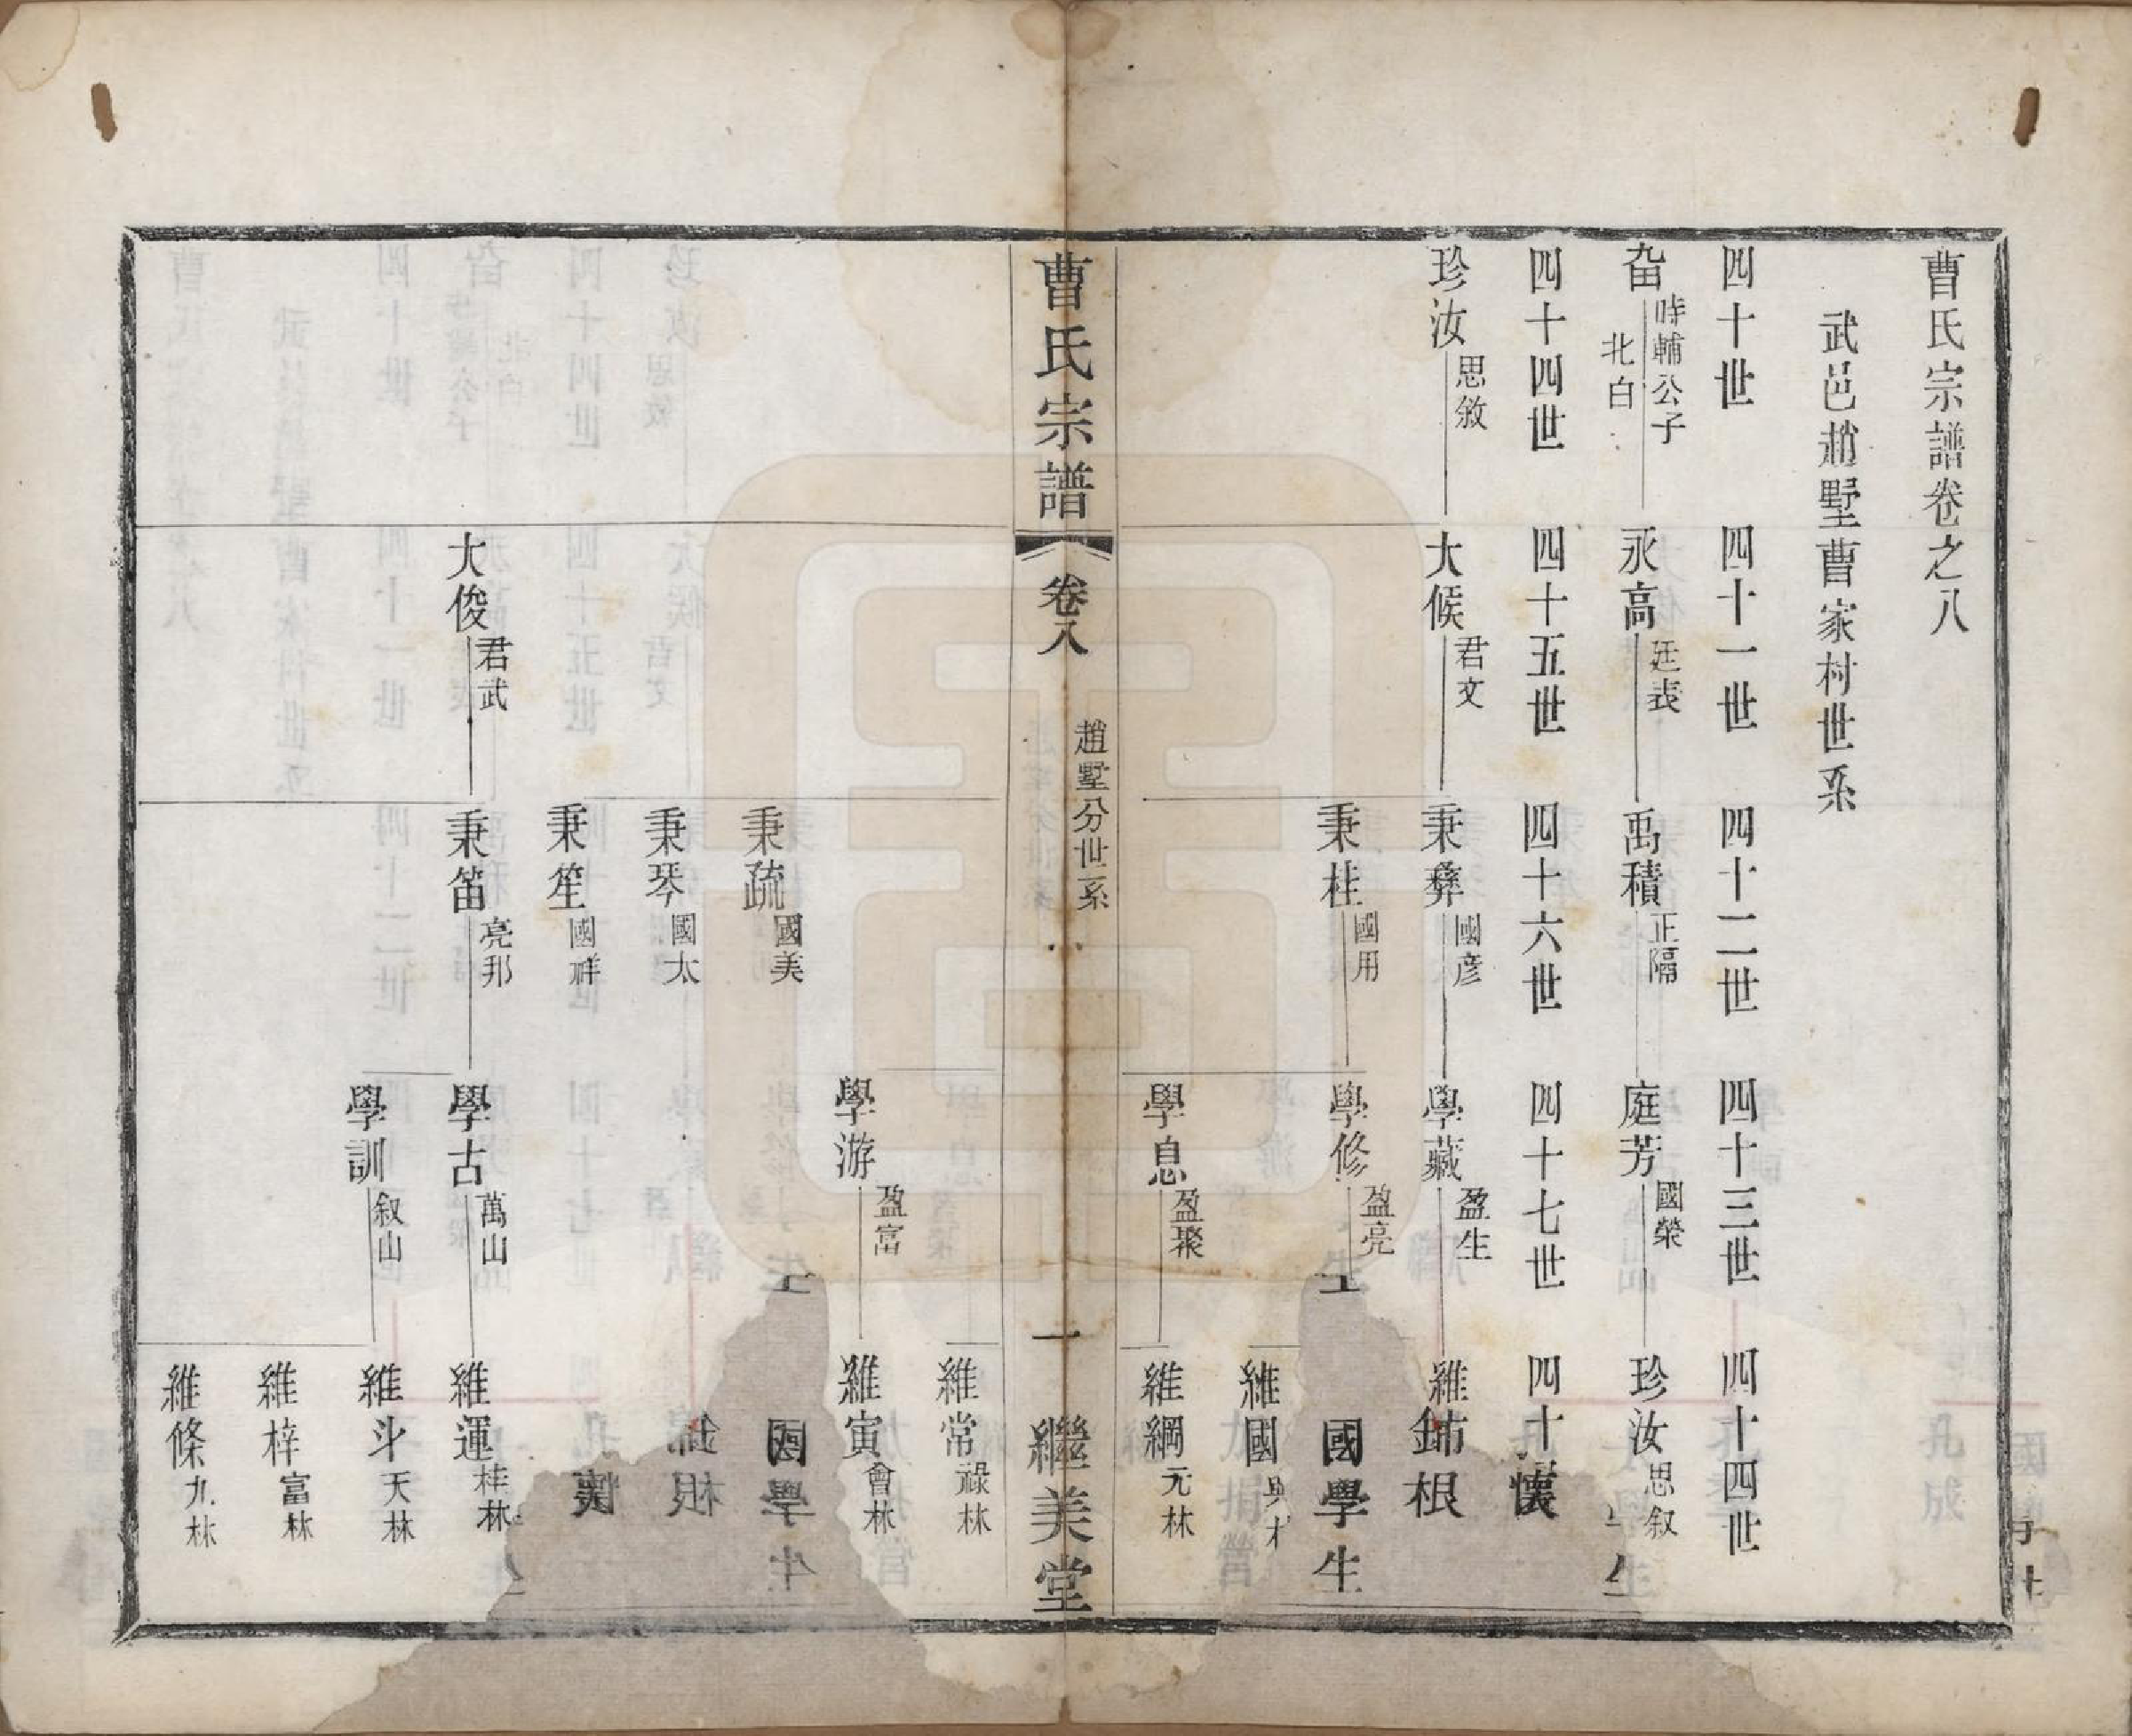 曹氏宗譜卷之八
武邑趙墅曹家村世系
四十世 四十一世 四十二世 四十三世 四十四世
畓 時輔公子 北白 永高 廷表 禹積 正隔 庭芳 國榮 珍汝 思叙
四十四世 四十五世 四十六世 四十七世 四十
珍汝 思敘 大候 君文 秉彝 國彦 學藏 盈生 維
秉柱 國用 學修 盈亮
維國
學息 盈聚 維綱 元林
曹氏宗譜 卷八 趙墅分世系 一 繼美堂
維常 祿林
學游 盈富 維寅 會林
秉疏 國美
秉琴 國太
秉笙 國祥
大俊 君武 秉笛 亮邦 學古 萬山 維運 桂林
學訓 叙山 維斗 天林
維梓 富林
維條 九林